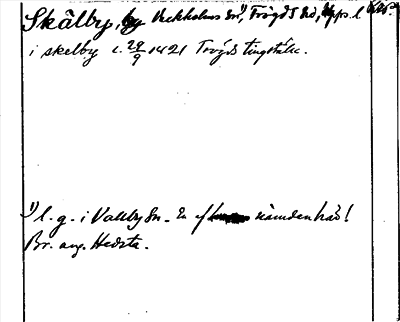 Skälby, by Veckholms sn¹⁾, Trögds hd, Upps. l
i skelby c. 29/9 1421 Trögds tingställe.
¹⁾ l. g. i Vallby sn. En af nämden här!
Br. ang. Hedsta.